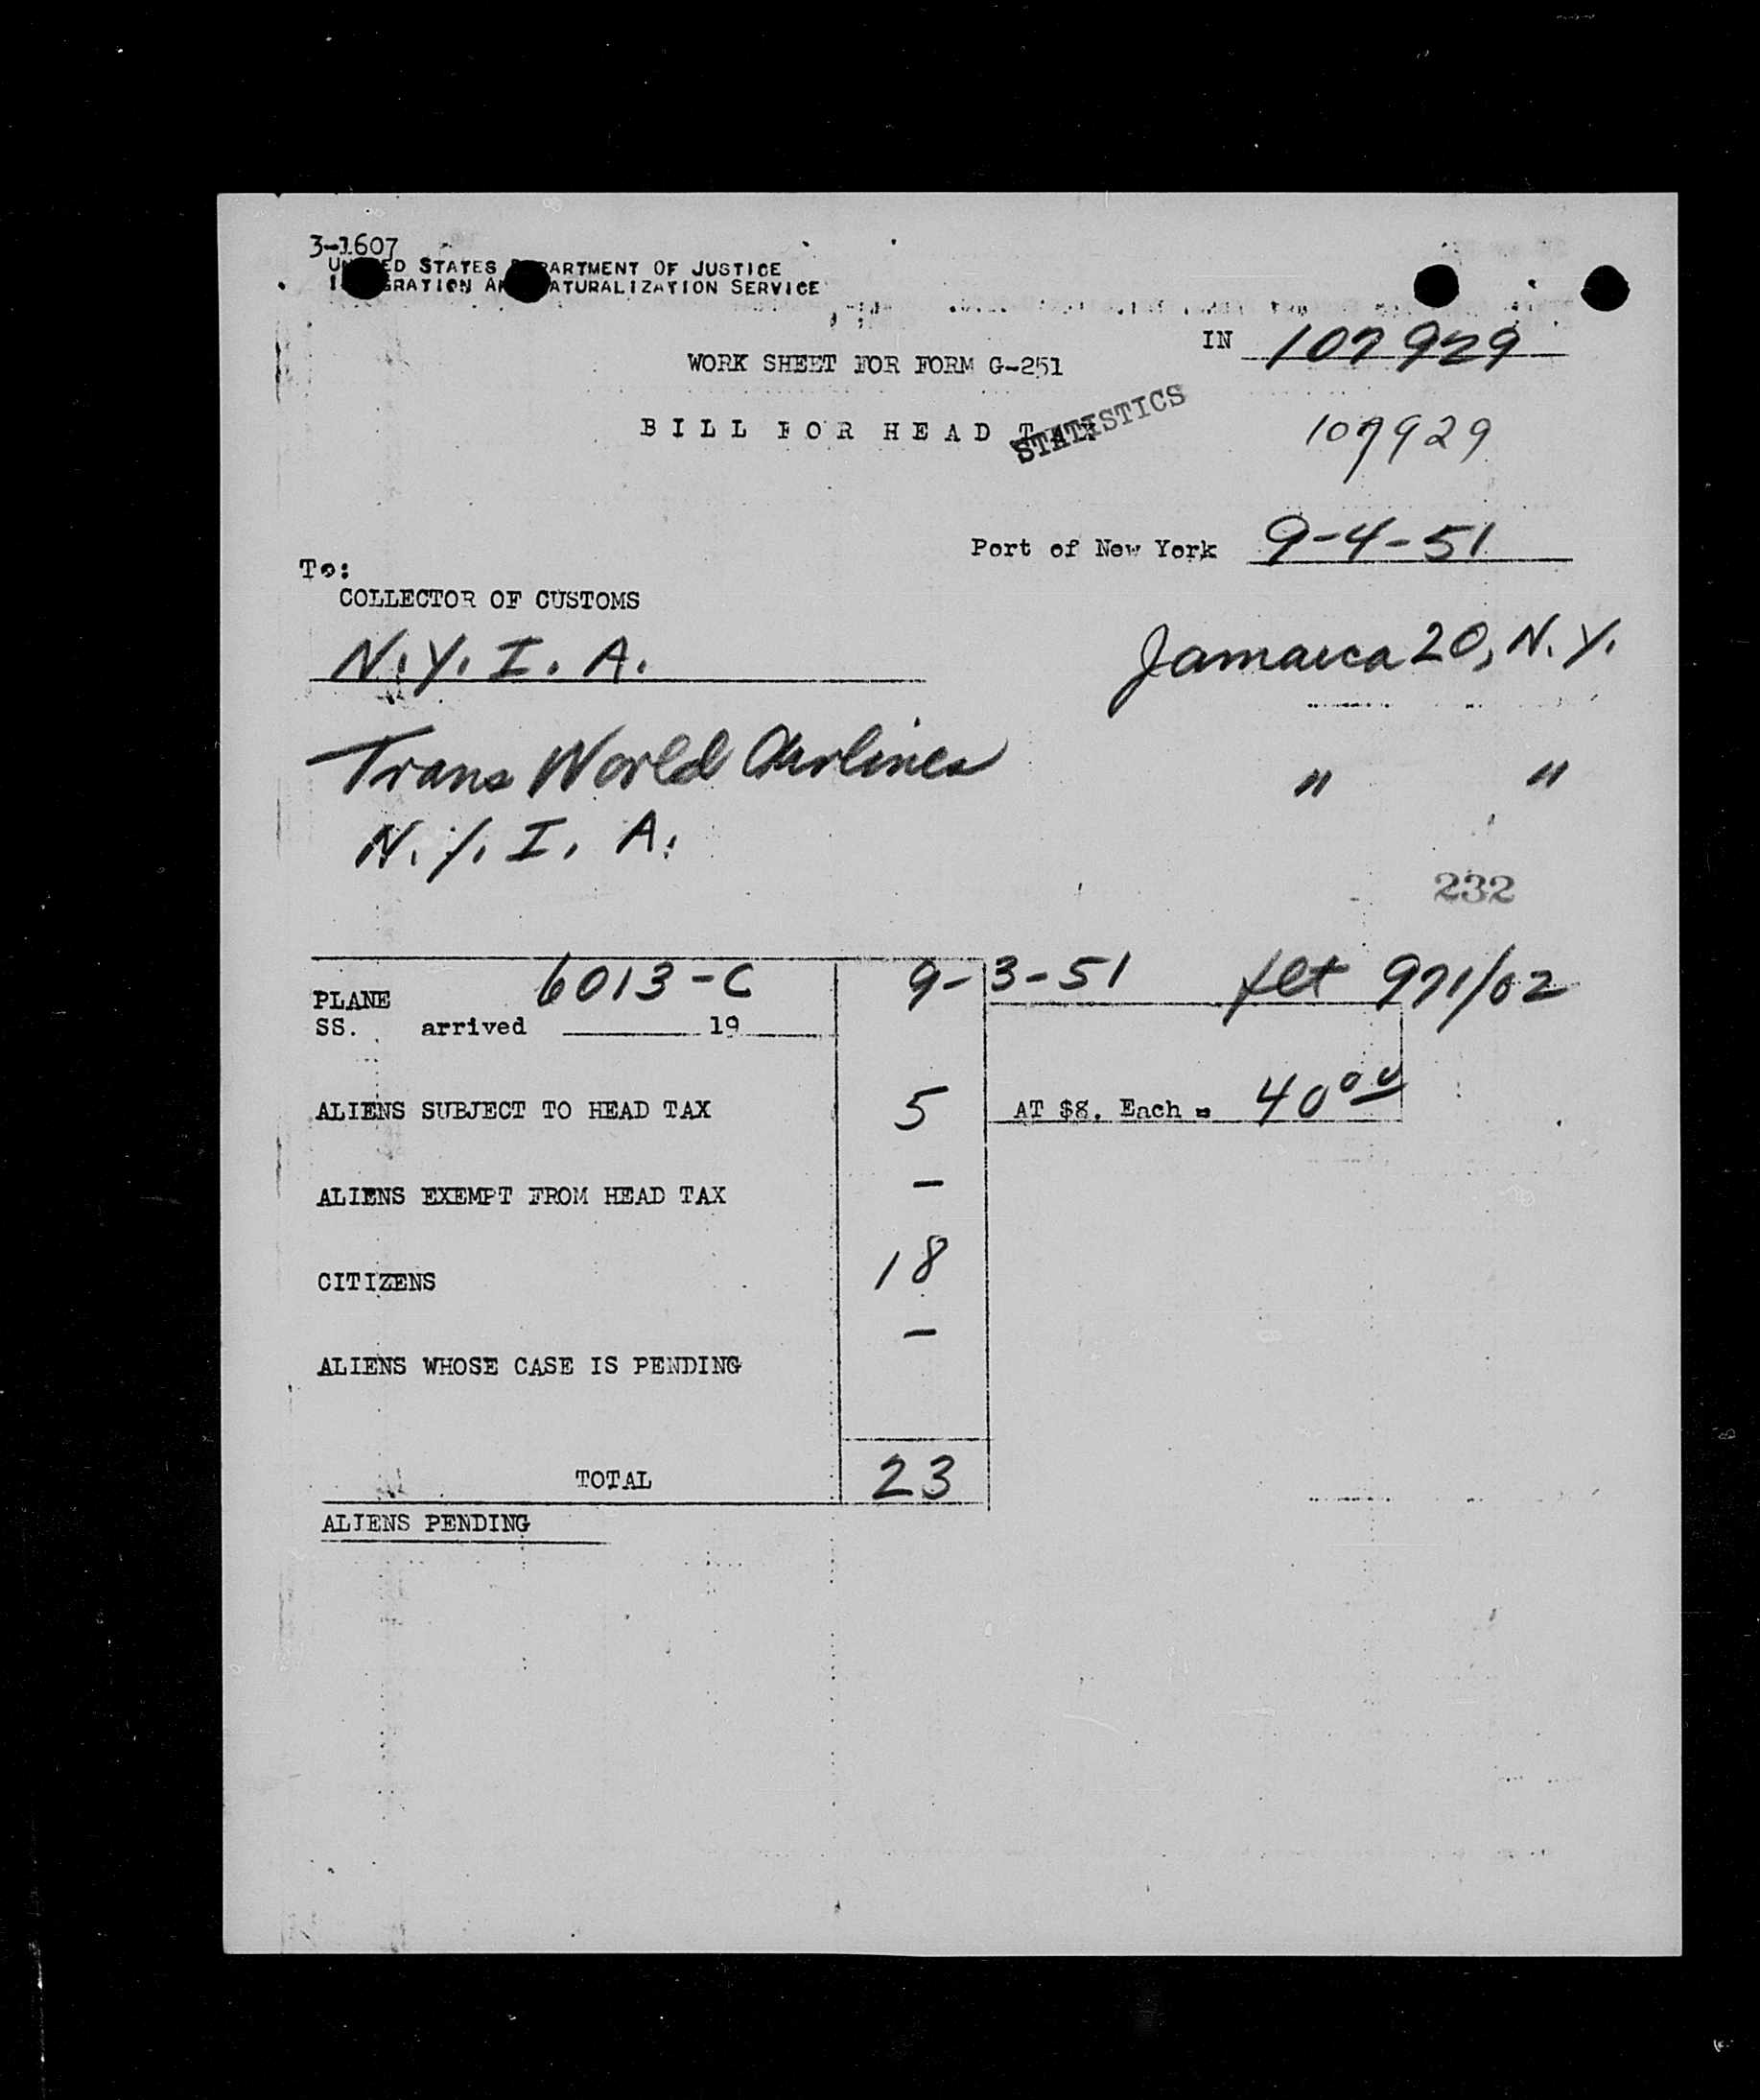 3-1607
UNITED STATES DEPARTMENT OF JUSTICE
IMMIGRATION AND NATURALIZATION SERVICE
IN 107929
WORK SHEET FOR FORM G-251
BILL FOR HEAD TAX
STATISTICS
107929
Port of New York 9-4-51
To:
COLLECTOR OF CUSTOMS
N.Y.I.A. Jamaica 20, N.Y.
Trans World Airlines " "
N.Y.I.A.
232
PLANE 6013-C 9-3-51 flt 971/02
SS. arrived 19
ALIENS SUBJECT TO HEAD TAX 5 AT $8. Each = 40 00
ALIENS EXEMPT FROM HEAD TAX -
CITIZENS 18
ALIENS WHOSE CASE IS PENDING -
TOTAL 23
ALIENS PENDING